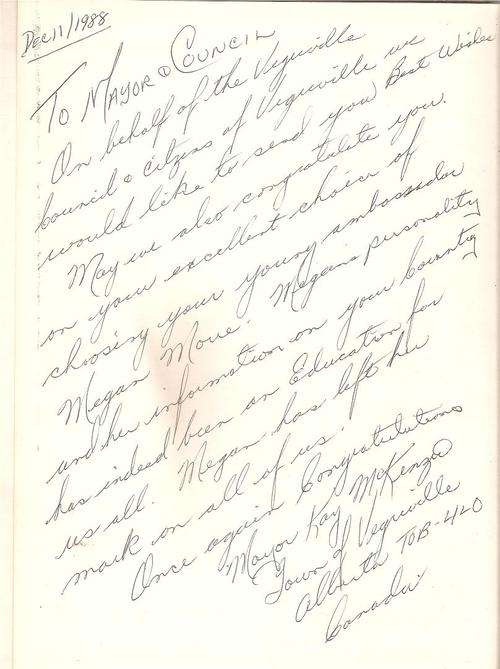 Dec 11/1988
To Mayor & Council
On behalf of the Vegreville
Council & citizens of Vegreville we
would like to send you Best Wishes
May we also congratulate you.
on your excellent choice of
choosing your young ambassador
Megan Megan's personality
and her information on your Country
has indeed been an Education for
us all. Megan has left her
mark on all of us.
Once again Congratulations
Mayor Kay McKenzie
Town of Vegreville
Alberta T0B-4L0
Canada